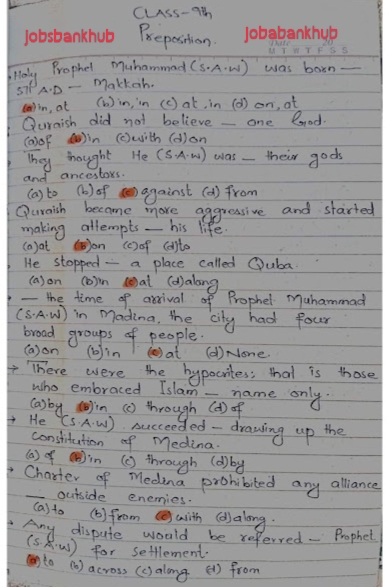 CLASS-9th
jobsbankhub
jobabankhub
Preposition.
M T W T F S S
Holy Prophet Muhammad (S.A.W) was born —
571 A.D — Makkah.
(a) in, at (b) in, in (c) at, in (d) on, at
Quraish did not believe — one God.
(a) of (b) in (c) with (d) on
They thought He (S.A.W) was — their gods
and ancestors.
(a) to (b) of (c) against (d) from
Quraish became more aggressive and started
making attempts — his life.
(a) at (b) on (c) of (d) to
He stopped — a place called Quba.
(a) on (b) in (c) at (d) along
— the time of arrival of Prophet Muhammad
(S.A.W) in Madina, the city had four
broad groups of people.
(a) on (b) in (c) at (d) None.
→ There were the hypocrites; that is those
who embraced Islam — name only.
(a) by (b) in (c) through (d) of
→ He (S.A.W) succeeded — drawing up the
Constitution of Medina.
(a) of (b) in (c) through (d) by
→ Charter of Medina prohibited any alliance
— outside enemies.
(a) to (b) from (c) with (d) along.
→ Any dispute would be referred — Prophet
(S.A.W) for settlement.
(a) to (b) across (c) along (d) from